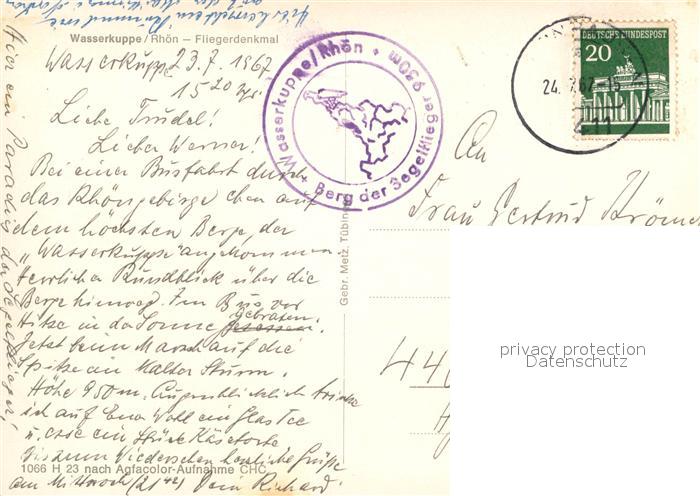 Wasserkuppe/Rhön – Fliegerdenkmal
Wasserkuppe 23.7.1967
15 20
Liebe Trudel!
Lieber Werner!
Bei einer Busfahrt durch
das Rhöngebirge eben auf
dem höchsten Berge, der
„Wasserkuppe" angekommen.
Herrlicher Rundblick über die
Berge hinweg. Im Bus vor
Hitze in der Sonne gebraten.
gesessen.
Jetzt beim Marsch auf die
Spitze ein kalter Sturm.
Höhe 950m. Augenblicklich trinke
ich auf Euer Wohl ein Glas Tee
u. esse ein Stück Käsetorte
Bis zum Wiedersehen herzliche Grüße
am Mittwoch (21 42) Dein Richard
1066 H 23 nach Agfacolor-Aufnahme CHC
Hier ein Paradies der Segelflieger!
Gebr. Metz, Tübingen
Wasserkuppe/Rhön + 950m
+ Berg der Segelflieger
24. 7.67
DEUTSCHE BUNDESPOST
20
An
Frau Gertrud
44
privacy protection
Datenschutz